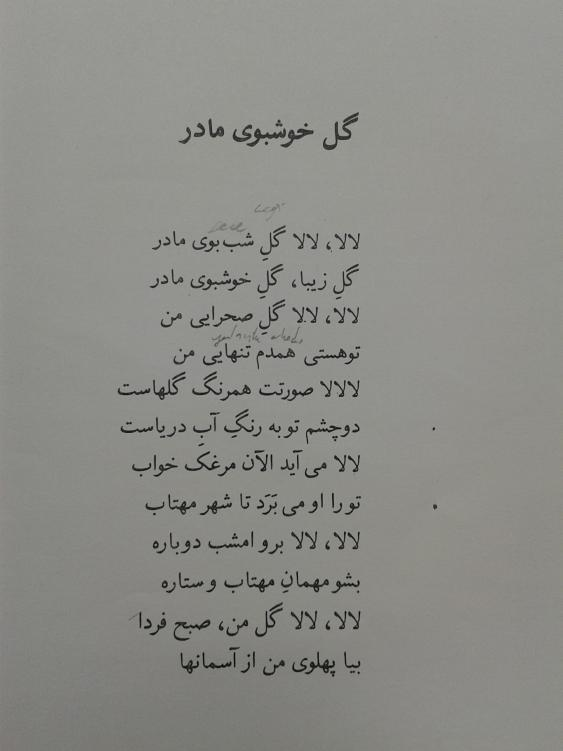 گل خوشبوی مادر
لالا، لالا گلِ شب‌بوی مادر
گلِ زیبا، گلِ خوشبوی مادر
لالا، لالا گلِ صحرایی من
توهستی همدم تنهایی من
لالالا صورتت همرنگ گلهاست
دوچشم تو به رنگِ آبِ دریاست
لالا می‌آید الآن مرغک خواب
تو را او می‌بَرَد تا شهر مهتاب
لالا، لالا برو امشب دوباره
بشو مهمانِ مهتاب و ستاره
لالا، لالا گل من، صبح فردا
بیا پهلوی من از آسمانها